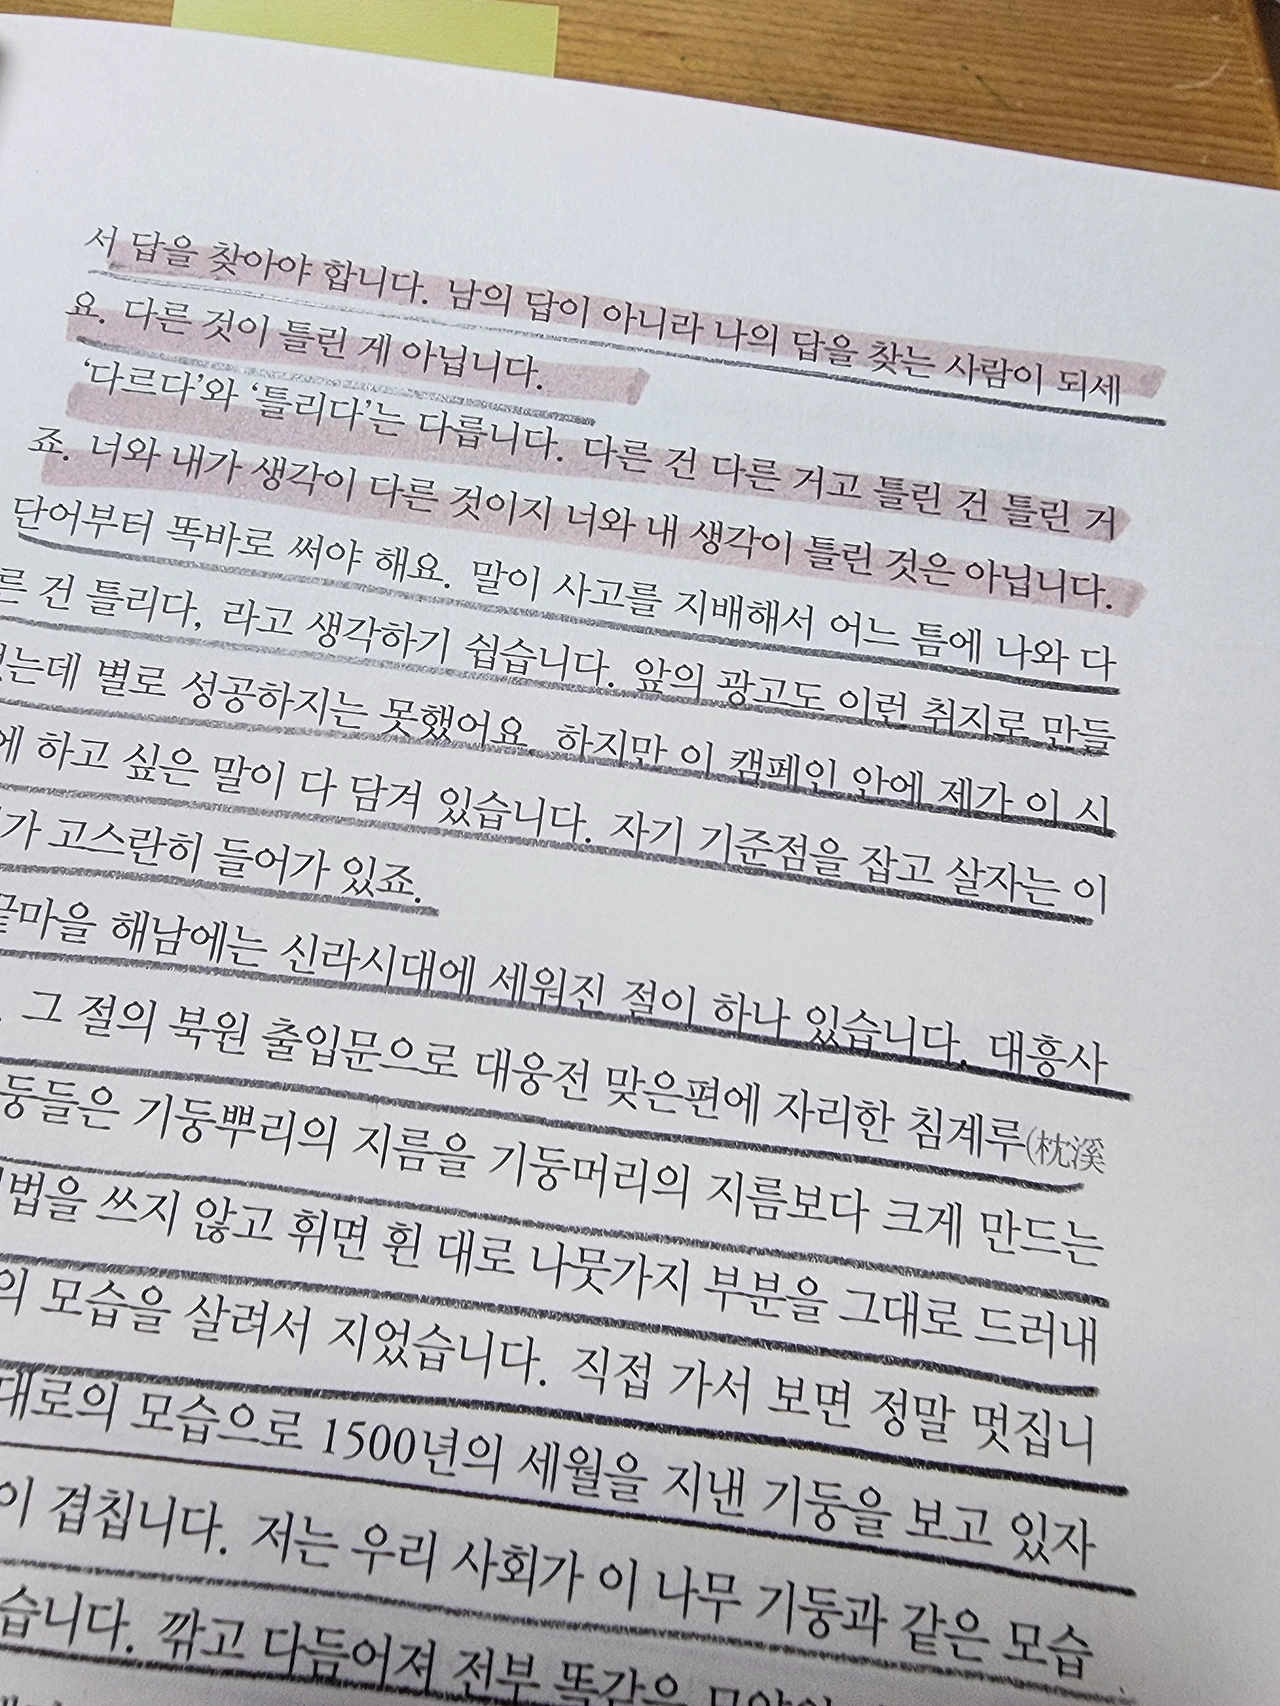 서 답을 찾아야 합니다. 남의 답이 아니라 나의 답을 찾는 사람이 되세
요. 다른 것이 틀린 게 아닙니다.
‘다르다’와 ‘틀리다’는 다릅니다. 다른 건 다른 거고 틀린 건 틀린 거
죠. 너와 내가 생각이 다른 것이지 너와 내 생각이 틀린 것은 아닙니다.
단어부터 똑바로 써야 해요. 말이 사고를 지배해서 어느 틈에 나와 다
른 건 틀리다, 라고 생각하기 쉽습니다. 앞의 광고도 이런 취지로 만들
는데 별로 성공하지는 못했어요. 하지만 이 캠페인 안에 제가 이 시
에 하고 싶은 말이 다 담겨 있습니다. 자기 기준점을 잡고 살자는 이
가 고스란히 들어가 있죠.
끝마을 해남에는 신라시대에 세워진 절이 하나 있습니다. 대흥사
. 그 절의 북원 출입문으로 대웅전 맞은편에 자리한 침계루(枕溪
둥들은 기둥뿌리의 지름을 기둥머리의 지름보다 크게 만드는
법을 쓰지 않고 휘면 휜 대로 나뭇가지 부분을 그대로 드러내
의 모습을 살려서 지었습니다. 직접 가서 보면 정말 멋집니
대로의 모습으로 1500년의 세월을 지낸 기둥을 보고 있자
이 겹칩니다. 저는 우리 사회가 이 나무 기둥과 같은 모습
습니다. 깎고 다듬어져 전부 똑같은